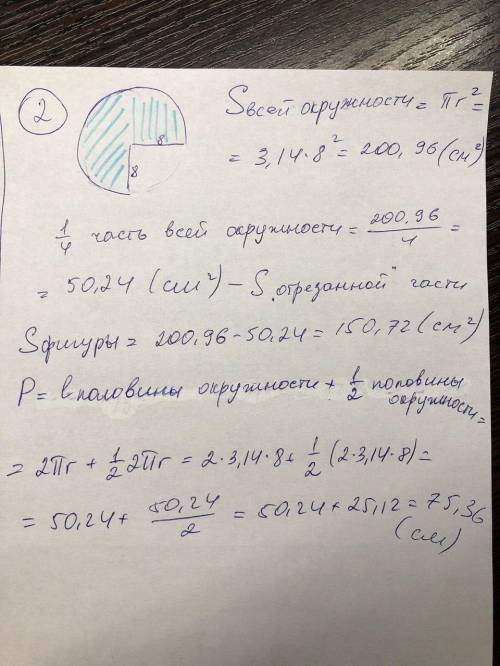 2
8
8
S всей окружности = πr² =
= 3,14·8² = 200,96 (см²)
1/4 часть всей окружности = 200,96/4 =
= 50,24 (см²) – S „отрезанной" части
S фигуры = 200,96 - 50,24 = 150,72 (см²)
P = половины окружности + 1/2 половины
окружности =
= 2πr + 1/2 2πr = 2·3,14·8 + 1/2 (2·3,14·8) =
= 50,24 + 50,24/2 = 50,24 + 25,12 = 75,36
(см)